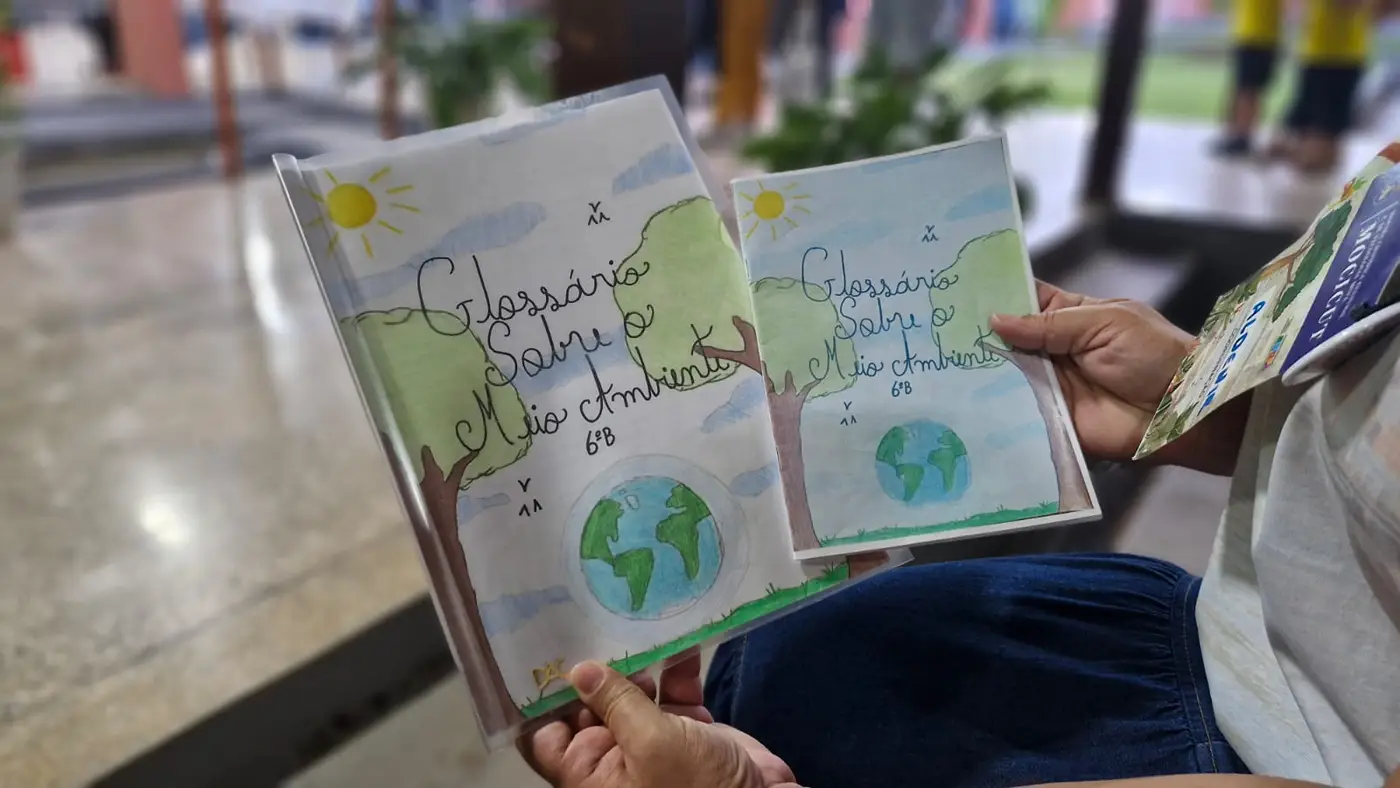 Glossário
Sobre o
Meio Ambiente
6ºB
Glossário
Sobre o
Meio Ambiente
6ºB
MOCICUT